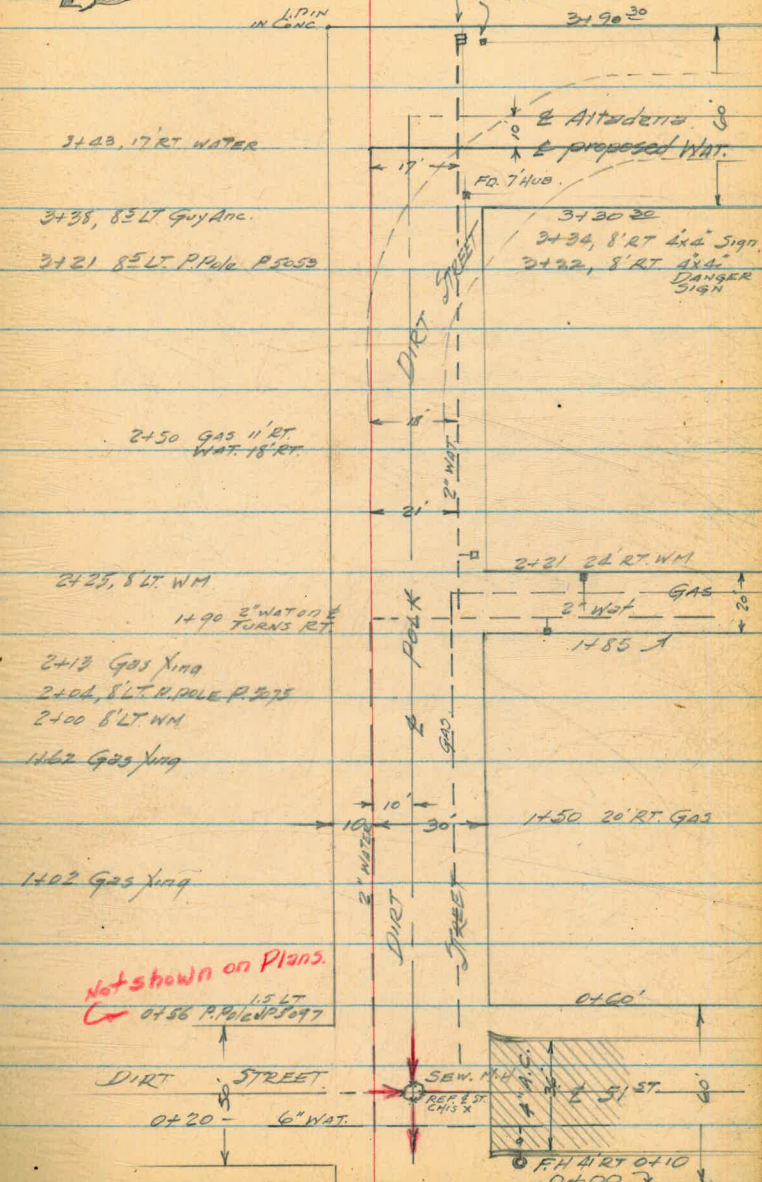 I.PIN
IN CONC
3+90 30
℄ Altadena
10'
60'
3+43, 17' RT WATER
℄ proposed WAT.
17'
FD. 7' HUB.
3+38, 8 5 LT Guy Anc.
3+30 20
3+34, 8' RT 4"x4" Sign
3+21 8 5 LT. P.Pole P5053
3+22, 8' RT 4"x4"
DANGER
SIGN
DIRT STREET
18'
2+50 GAS 11' RT.
WAT. 18' RT.
2" WAT
21'
2+21 24' RT. WM
2+25, 8' LT. WM
GAS
2" Wat
20'
1+90 2" WAT ON ℄
TURNS RT.
1+85
℄ POLK
2+13 Gas Xing
2+04, 8' LT. P.POLE P.5075
2+00 8' LT WM
GAS
1+62 Gas Xing
10'
10'
30'
1+50 20' RT. GAS
2" WATER
1+02 Gas Xing
DIRT STREET
Not shown on Plans.
1.5 LT
0+56 P.Pole JP5097
0+60'
DIRT STREET
50'
SEW. M.H
REF. ℄ ST.
CHIS X
4" A.C.
36'
℄ 51 ST.
60'
0+20 - 6" WAT.
F.H 41' RT 0+10
0+00